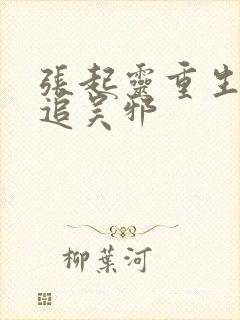 張起靈重生
追吴邪
柳葉河